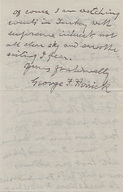 of course I am watching
events in Turkey with
interest not
all clear sky and smooth
sailing I fear.
Yours fraternally
George F.